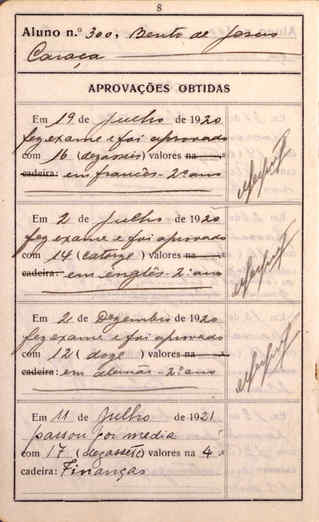 8
Aluno n.º 300, Bento de Jesus
Caraça
APROVAÇÕES OBTIDAS
Em 19 de Julho de 1920
fez exame e foi aprovado
com 16 (dezasseis) valores na
cadeira: em francês - 2.º ano
Em 2 de Julho de 1920
fez exame e foi aprovado
com 14 (catorze) valores na
cadeira: em inglês - 2.º ano
Em 2 de Dezembro de 1920
fez exame e foi aprovado
com 12 (doze) valores na
cadeira: em alemão - 2.º ano
Em 11 de Julho de 1921
passou por media
com 17 (dezassete) valores na 4.ª
cadeira: Finanças